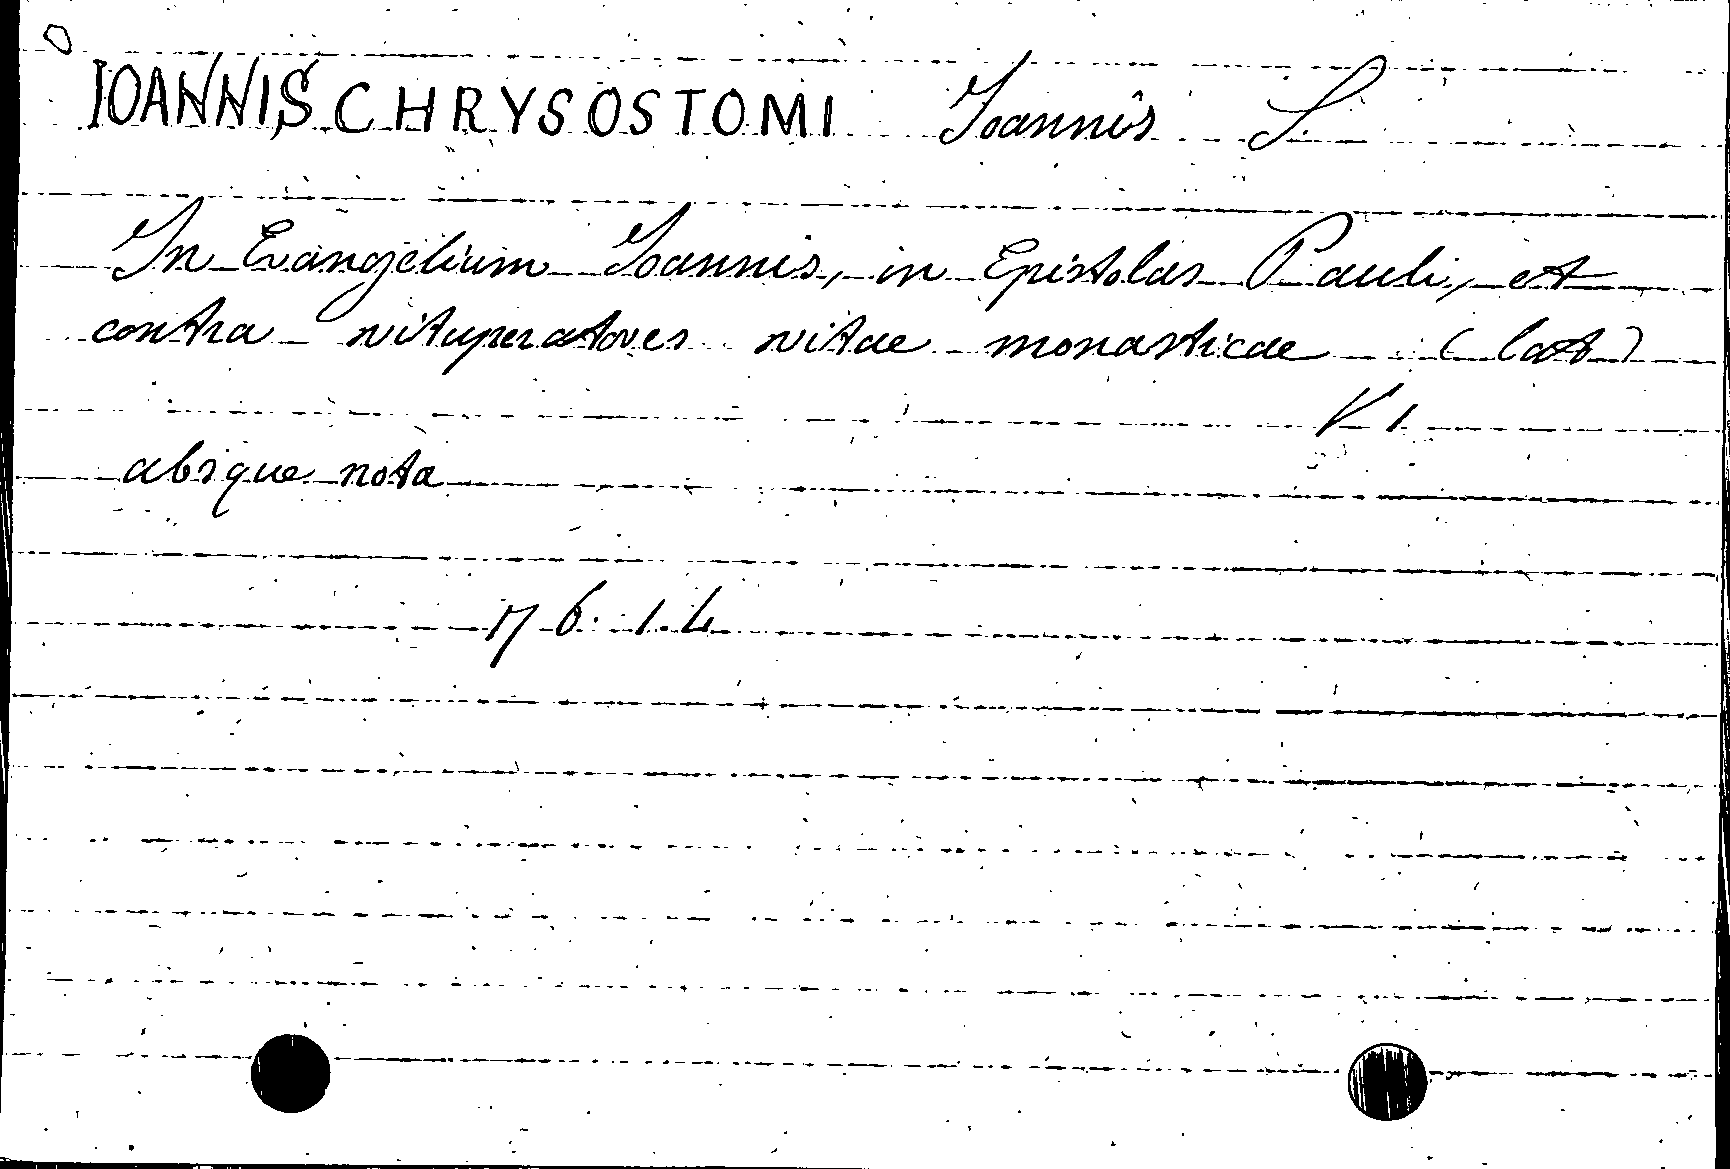 IOANNIS CHRYSOSTOMI Ioannis S.
In Evangelium Ioannis, in Epistolas Pauli, et
contra vituperatores vitae monasticae (lat)
V 1
absque nota
17 6. 1. 4